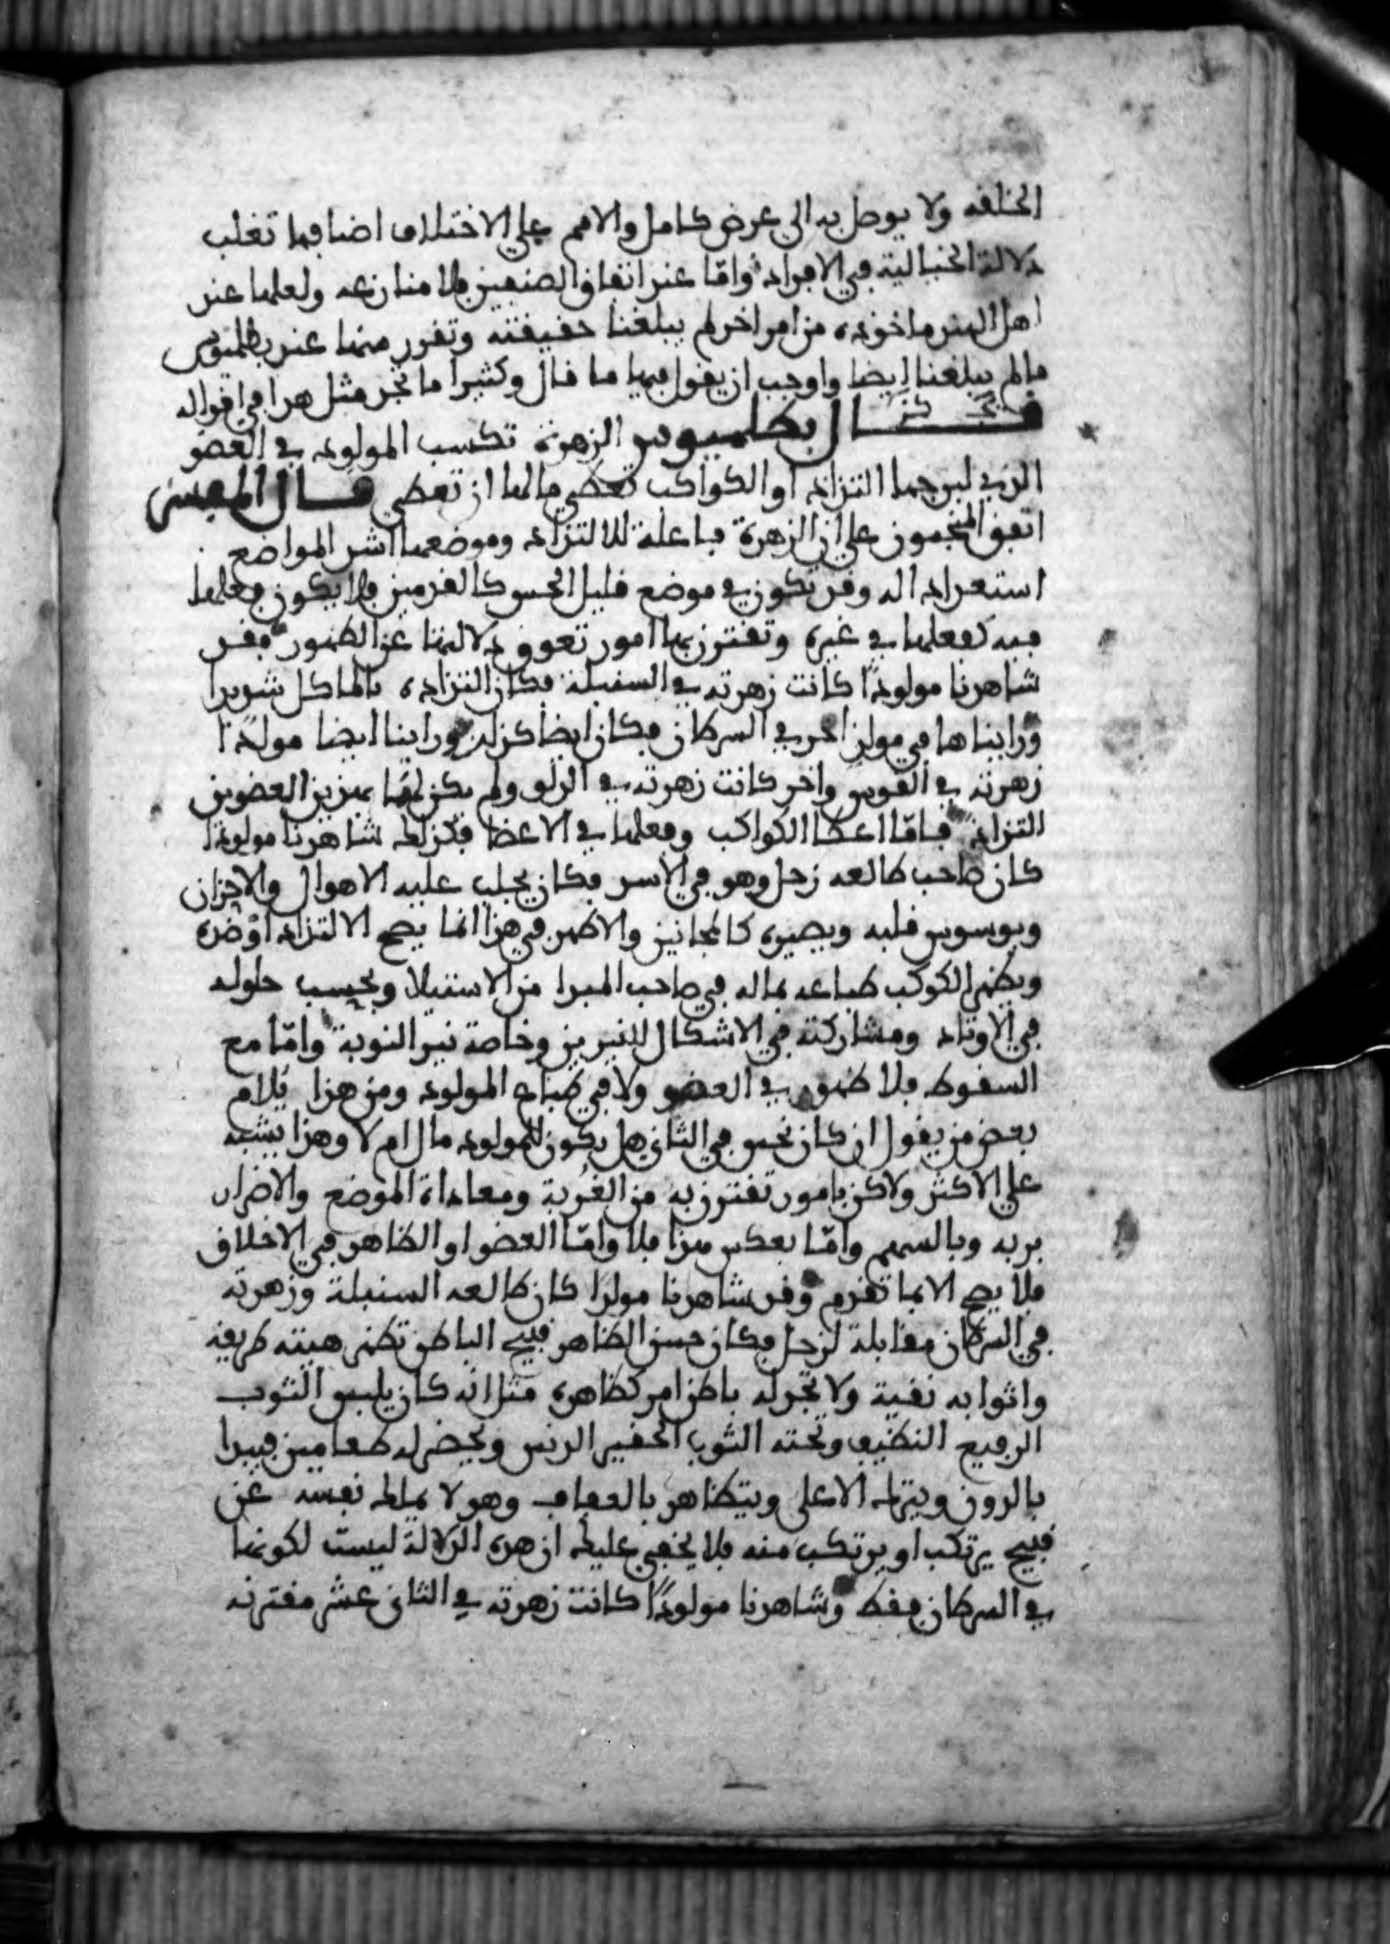 الخلقه ولا يوصل به الى عرض كامل والامم على الاختلاف ايضا فبما تغلب
دلالة الخيالية في الافراد واما عند اتفاق الصنفين فلا منازعه ولعلها عند
اهل الهند ماخوذه من امر اخر لم يبلغنا حقيقته وتقرر منها عند بطلميوس
مالم يبلغنا ايضا واوجب ان يقول فيها ما قال وكثيرا ما نجد مثل هذا في اقواله
قال بطلميوس الزهرة تكسب المولود في العضو
الذي لبرجها التزاذه او الكواكب تعطي مالها ان تعطي قال المفسر
اتفق المنجمون على ان الزهرة فاعلة للالتزاذ وموضعها اشد المواضع
استعدادا له وقد تكون في موضع قليل الحس كالقدمين فلا يكون فعلها
فيه كفعلها في غيره وتقترن بها امور تعوق دلالتها عن الظهور فقد
شاهدنا مولودًا كانت زهرته في السنبلة فكان التزاذه بالماكل شديدا
ورايناها في مولد اخر في السرطان فكان ايضا كذلك وراينا ايضا مولدا
زهرته في القوس واخر كانت زهرته في الدلو ولم يكن لهما بهذين العضوين
التزاذ فاما اعطا الكواكب وفعلها في الاعضا فكذلك شاهدنا مولودا
كان صاحب طالعه زحل وهو في الاسد فكان يجلب عليه الاهوال والاحزان
ويوسوس قلبه ويصيره كالمجانين والاظهر في هذا انما يصح الالتزاذ او ضده
ويظهر الكوكب طباعه بماله في صاحب المبدا من الاستيلا وبحسب حلوله
في الاوتاد ومشاركته في الاشكال للنيرين وخاصة نير النوبة واما مع
السقوط فلا ظهور في العضو ولا في طباع المولود ومن هذا يلام
بعض من يقول ان كان نحس في الثاني هل يكون للمولود مال ام لا وهذا يشبه
على الاكثر ولاكن بامور تقترن به من الغربة ومعاداة الموضع والاضرار
بربه وبالسهم واما بعكس هذا فلا واما العضو او الظاهر في الاخلاق
فلا يصح الا بما تقدم وقد شاهدنا مولدا كان طالعه السنبلة وزهرته
في السرطان مقابلة لزحل فكان حسن الظاهر قبيح الباطن تظهر هيئته ظريفه
واثوابه نقية ولا تجد له باطن امر كظاهره مثل انه كان يلبس الثوب
الرفيع النظيف وتحته الثوب الحقير الدنس ويحضر له طعامين فيبدا
بالدون ويترك الاعلى ويتظاهر بالعفاف وهو لا يملك نفسه عن
قبيح يرتكب او يرتكب منه فلا يخفى عليك ان هذه الدلالة ليست لكونها
في السرطان فقط وشاهدنا مولودًا كانت زهرته في الثاني عشر مقترنه